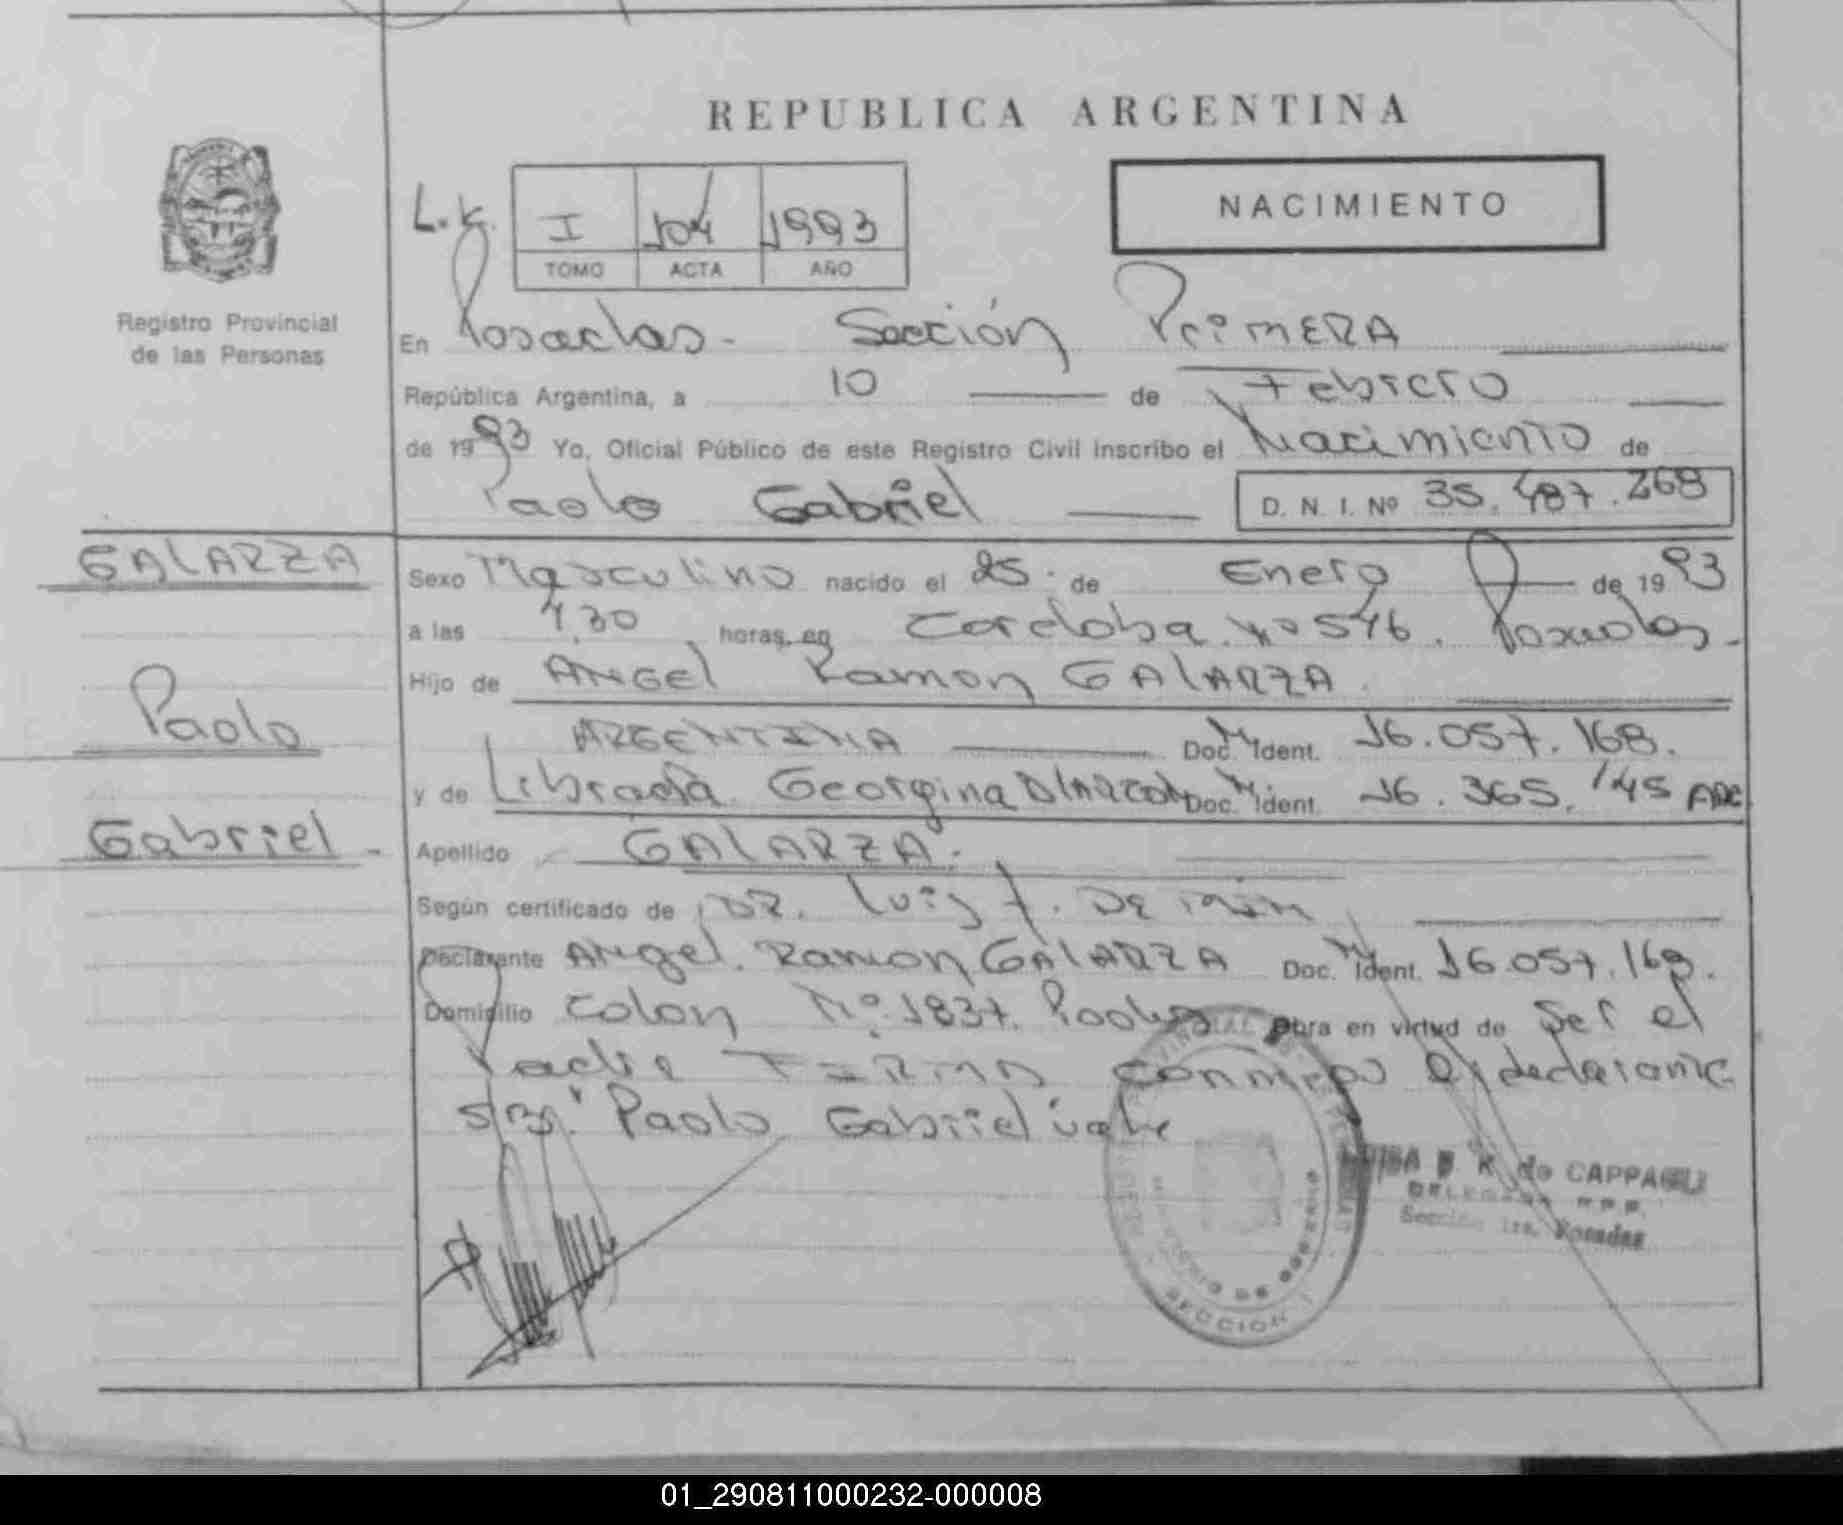 REPUBLICA ARGENTINA
NACIMIENTO
L.K.
I 104 1993
TOMO ACTA AÑO
Registro Provincial
de las Personas
En Posadas - Sección Primera
República Argentina, a 10 de Febrero
de 1993 Yo, Oficial Público de este Registro Civil inscribo el Nacimiento de
Paolo Gabriel D. N. I. Nº 35.487.268
GALARZA
Paolo
Gabriel -
Sexo Masculino nacido el 25 de Enero de 1993
a las 7,30 horas, en Cordoba Nº 546. Posadas -
Hijo de ANGEL Ramon GALARZA
ARGENTINA Doc. Ident. 16.057.168.
y de Librada Georgina Doc. Ident. 16.365.145 ARG
Apellido GALARZA.
Según certificado de DR. Luis
Declarante Angel Ramon GALARZA Doc. Ident. 16.057.168.
Domicilio Colon Nº 1837. Posadas Obra en virtud de Ser el
Padre FIRMA conmigo el declarante
S/R: Paolo Gabriel vale
K. de CAPPA
DELEGADA R.P.P.
Sección 1ra. Posadas
SECCION
01_290811000232-000008